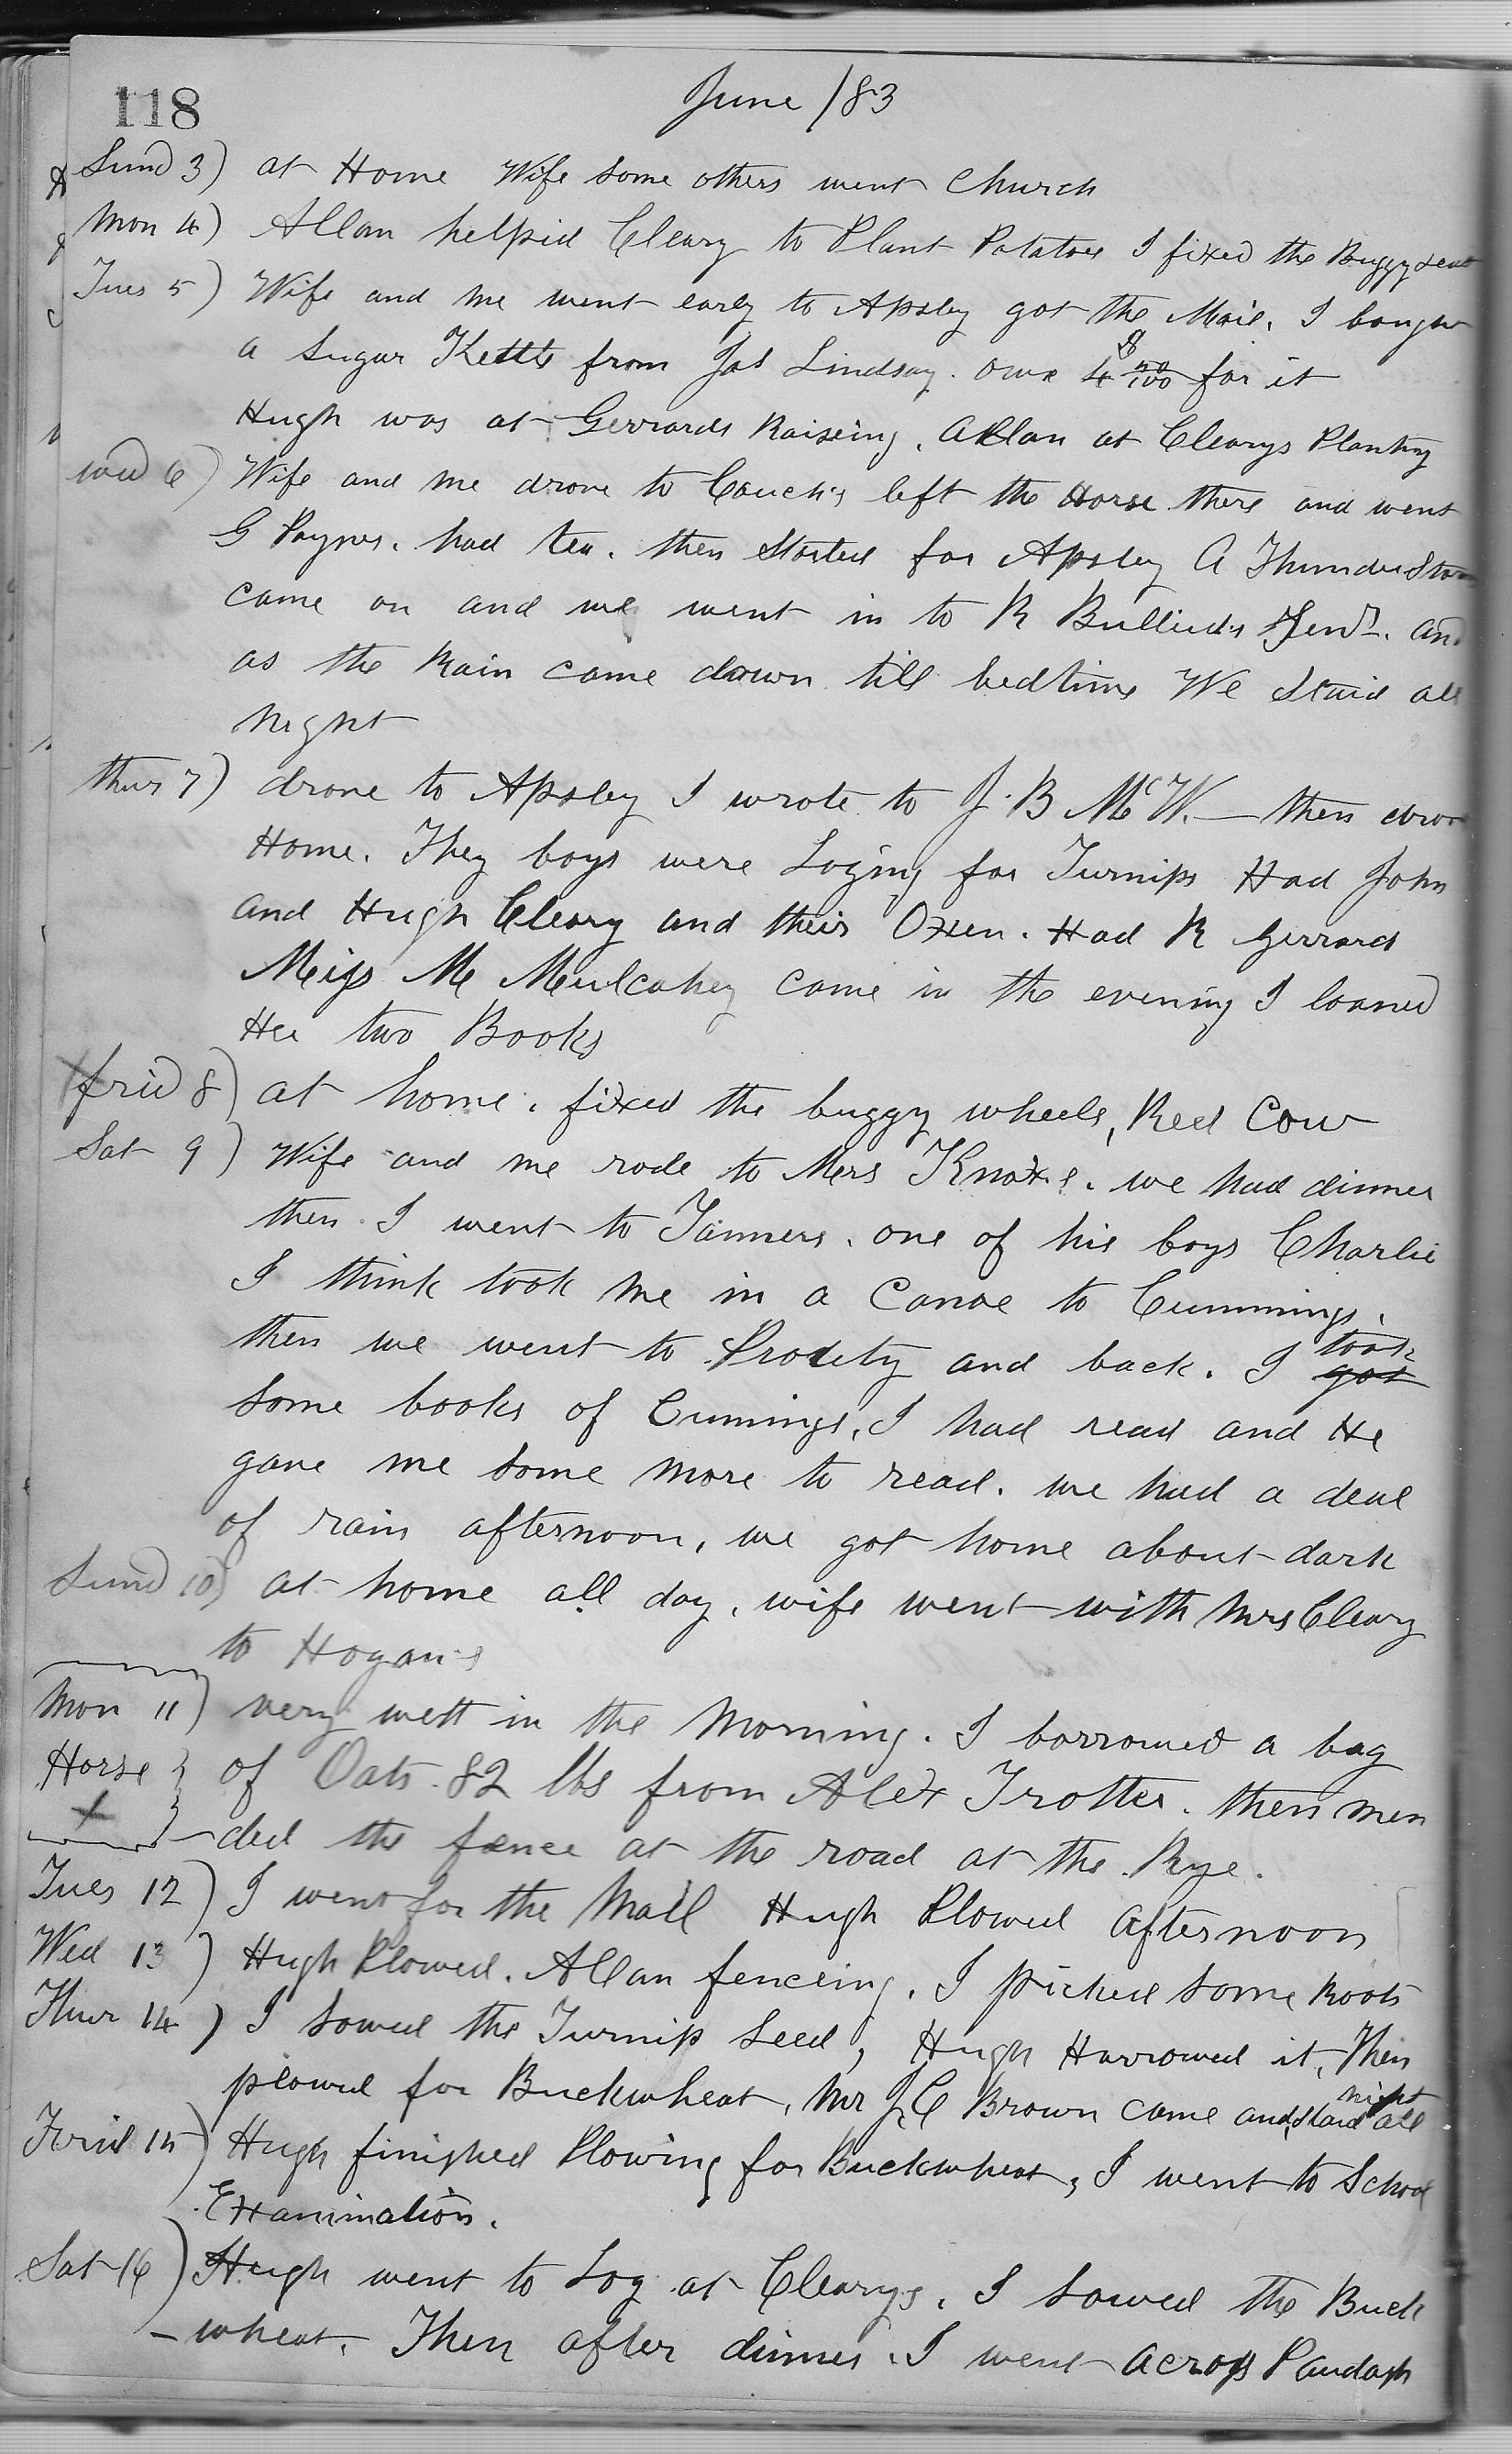 118
June /83
Sund 3) at Home Wife some others went Church
Mon 4) Allan helpid Cleary to Plant Potatoes I fixed the Buggy seat
Tues 5) Wife and me went early to Apsley got the Mail. I bought
a Sugar Kettle from Jas Lindsay. owe $4 50/100 for it
Hugh was at Gerrards Raising. Allan at Clearys Planting
Wed 6) Wife and me drove to Couch's left the Horse there and went
G Paynes. had tea. then Started for Apsley A Thunder Storm
came on and we went in to R Bullied's Senr. and
as the Rain came down till bedtime We Staid all
night
thur 7) drove to Apsley I wrote to J. B McW. — then drove
Home. They boys were Loging for Turnips Had John
and Hugh Cleary and their Oxen. Had R Gerrard
Miss M Mulcahey came in the evening I loaned
Her two Books
frid 8) at home. fixed the buggy wheels, Red Cow
Sat 9) Wife and me rode to Mrs Knoxs. we had dinner
then I went to Tanners. one of his boys Charlie
I think took me in a Canoe to Cummings.
then we went to and back. I took got
some books of Cumings, I had read and He
gave me some more to read. we had a deal
of rain afternoon, we got home about dark
Sund 10) at home all day. wife went with Mrs Cleary
to Hogan's
Mon 11) very wett in the Morning. I borrowed a bag
Horse } of Oats. 82 lbs from Alex Trotter. then men
x } -ded the fence at the road at the Rye.
Tues 12) I went for the Mail Hugh Plowed afternoon
Wed 13) Hugh Plowed. Allan fenceing. I picked some Roots
Thur 14) I sowed the Turnip Seed, Hugh Harrowed it, Then
plowed for Buckwheat, Mr J C Brown came and staid all night
Frid 15) Hugh finished Plowing for Buckwheat, I went to School
Examination.
Sat 16) Hugh went to Log at Clearys. I sowed the Buck
-wheat. Then after dinner. I went across Paudash